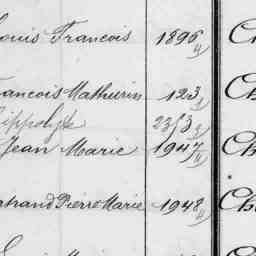 Louis François 1896 4/ Ch
François Mathurin 123 1/ Ch
Hippolyte 2313 9/
Jean Marie 1947 11/ Ch
Bertrand Pierre Marie 1948 11/ Ch